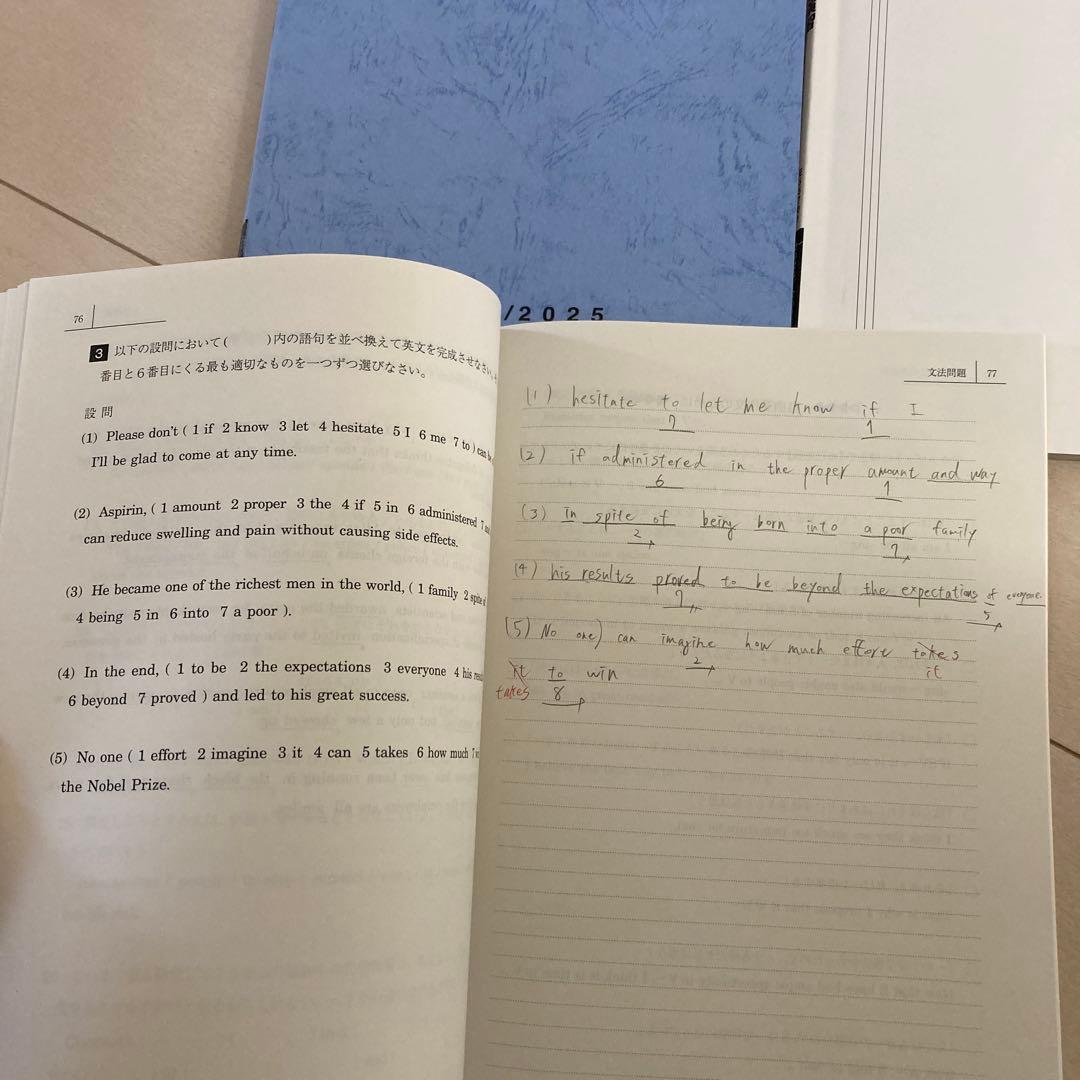 /2025
76
3 以下の設問において(　　)内の語句を並べ換えて英文を完成させなさい。
番目と6番目にくる最も適切なものを一つずつ選びなさい。
設問
(1) Please don't ( 1 if 2 know 3 let 4 hesitate 5 I 6 me 7 to ) can
I'll be glad to come at any time.
(2) Aspirin, ( 1 amount 2 proper 3 the 4 if 5 in 6 administered 7
can reduce swelling and pain without causing side effects.
(3) He became one of the richest men in the world, ( 1 family 2 spite
4 being 5 in 6 into 7 a poor ).
(4) In the end, ( 1 to be 2 the expectations 3 everyone 4 his
6 beyond 7 proved ) and led to his great success.
(5) No one ( 1 effort 2 imagine 3 it 4 can 5 takes 6 how much 7
the Nobel Prize.
文法問題 77
(1) hesitate to let me know if I
7 1
(2) if administered in the proper amount and way
6 1
(3) in spite of being born into a poor family
2 7
(4) his results proved to be beyond the expectations of everyone.
7 5
(5) No one) can imagine how much effort takes
2 it
it to win
takes 8